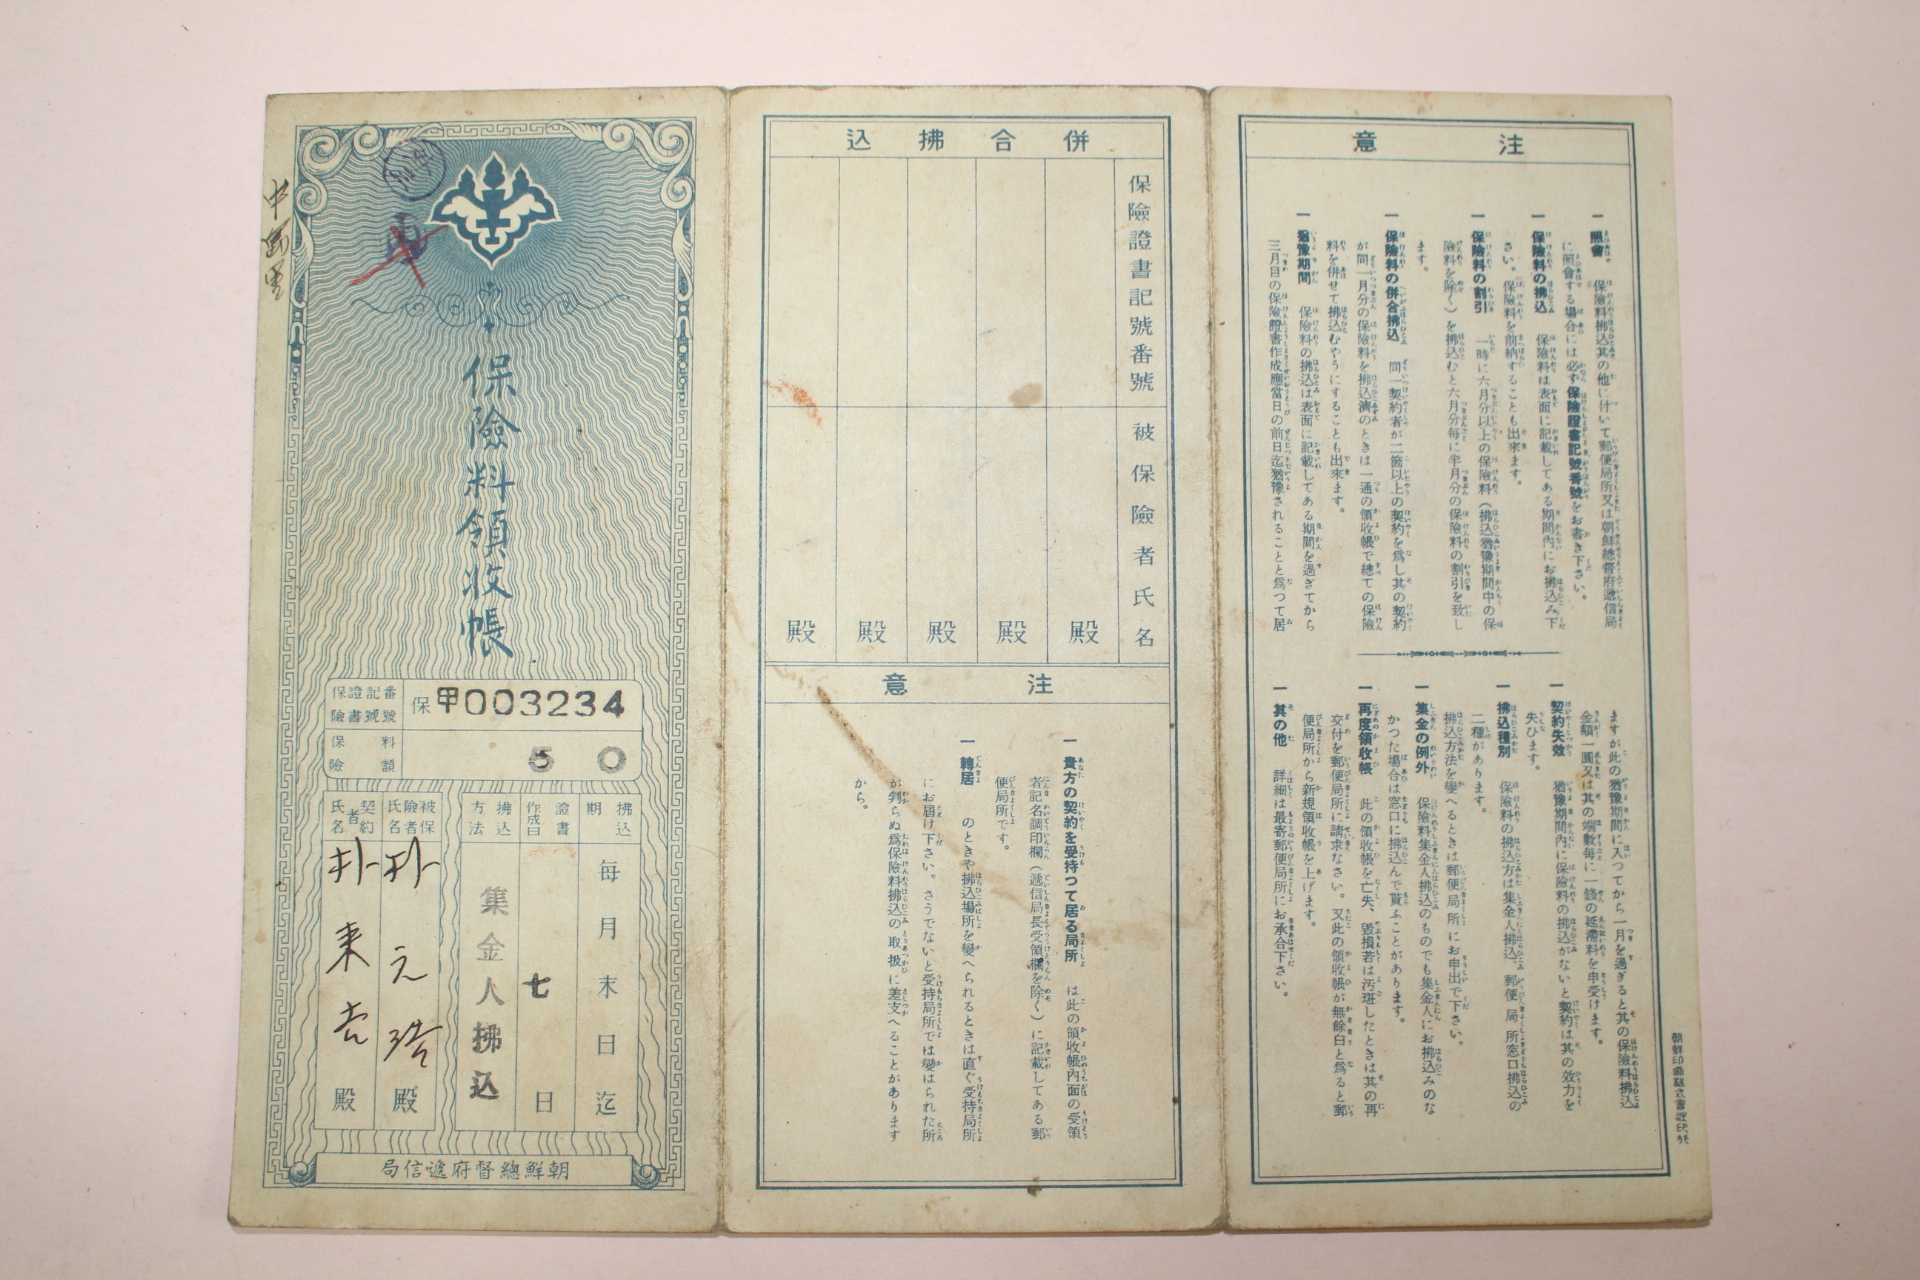 保險料領收帳
保險證書記號番號
保甲003234
保險料額
50
拂込期
每月末日迄
證書作成日
七日
拂込方法
集金人拂込
被保險者氏名
朴元浩殿
契約者氏名
朴来吉殿
朝鮮總督府遞信局
併合拂込
保險證書記號番號
被保險者氏名
殿
殿
殿
殿
殿
注意
一 貴方の契約を受持つて居る局所 は此の領收帳內面の受領
者記名調印欄(遞信局長受領欄を除く)に記載してある郵
便局所です。
一 轉居 のときや拂込場所を變へられるときは直ぐ受持局所
にお屆け下さい。さうでないと受持局所では變はられた所
が判らぬ爲保險料拂込の取扱に差支へることがあります
から。
注意
一 照會 保險料拂込其の他に付いて郵便局所又は朝鮮總督府遞信局
に照會する場合には必ず保險證書記號番號をお書き下さい。
一 保險料の拂込 保險料は表面に記載してある期間內にお拂込み下
さい。保險料を前納することも出來ます。
一 保險料の割引 一時に六月分以上の保險料(拂込猶豫期間中の保
險料を除く)を拂込むと六月分每に半月分の保險料の割引を致し
ます。
一 保險料の併合拂込 同一契約者が二箇以上の契約を爲し其の契約
が同一月分の保險料を拂込濟のときは一通の領收帳で總ての保險
料を併せて拂込むやうにすることも出來ます。
一 猶豫期間 保險料の拂込は表面に記載してある期間を過ぎてから
三月目の保險證書作成應當日の前日迄猶豫されることと爲つて居
ますが此の猶豫期間に入つてから一月を過ぎると其の保險料拂込
金額一圓又は其の端數每に一錢の延滯料を申受けます。
一 契約失效 猶豫期間內に保險料の拂込がないと契約は其の效力を
失ひます。
一 拂込種別 保險料の拂込方は集金人拂込、郵便局所窓口拂込の
二種があります。
拂込方法を變へるときは郵便局所にお申出で下さい。
一 集金の例外 保險料集金人拂込のものでも集金人にお拂込みのな
かつた場合は窓口に拂込んで貰ふことがあります。
一 再度領收帳 此の領收帳を亡失、毀損若は汚斑したときは其の再
交付を郵便局所に請求なさい。又此の領收帳が無餘白と爲ると郵
便局所から新規領收帳を上げます。
一 其の他 詳細は最寄郵便局所にお承合下さい。
朝鮮印刷株式會社印刷